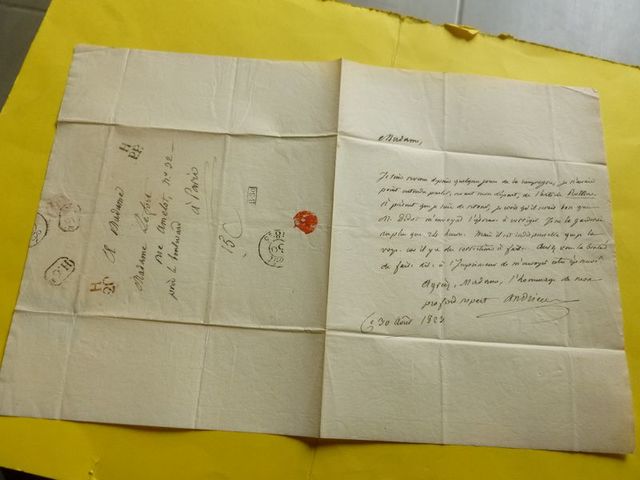 Madame,
Je suis revenu depuis quelques jours de la campagne, je n'avais
point entendu parler, avant mon départ, de l'article
à présent que je suis de retour, je crois qu'il serait bon que
M. Didot m'envoyât l'épreuve à corriger. Je ne la garderai
pas plus que 24 heures. Mais il est indispensable que je la
voye car il y a des corrections à faire. Ayez donc la bonté
de faire dire à l'Imprimeur de m'envoyer cette épreuve.
Agréez, Madame, l'hommage de mon
profond respect Andrieux
Ce 30 Août 1823
A Madame
Madame Lefèvre
rue Amelot, n° 22
près le boulevard
à Paris
H
PP
H
2C